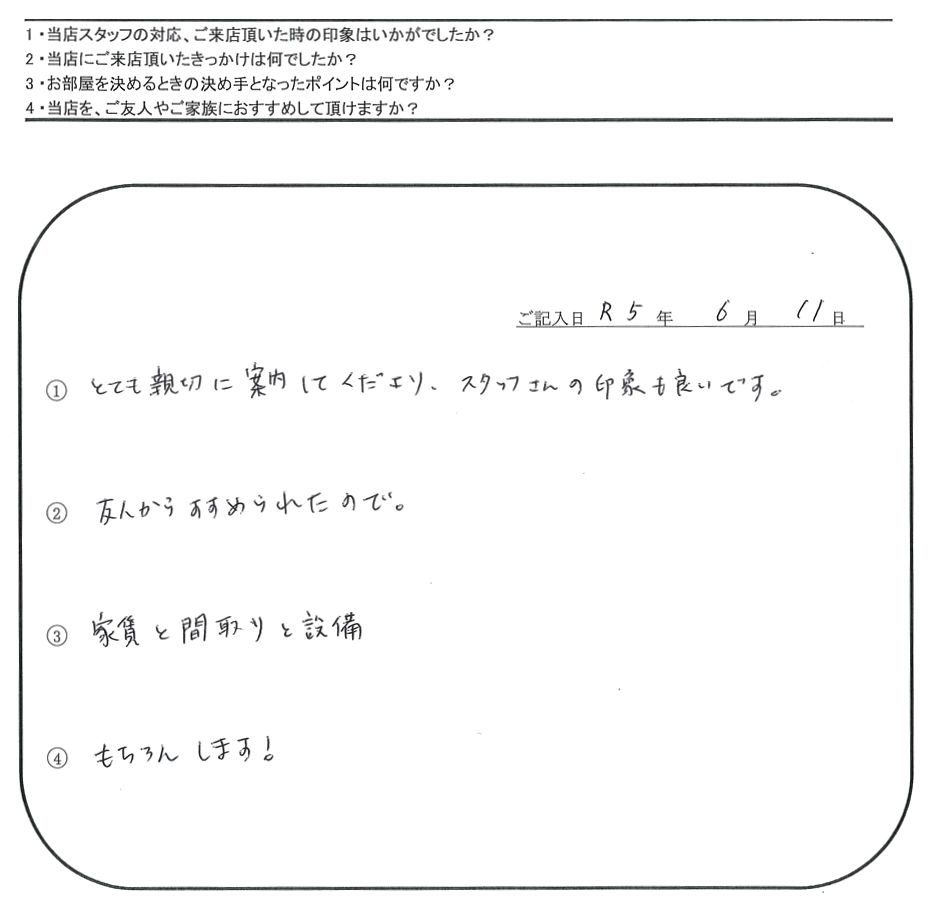 1・当店スタッフの対応、ご来店頂いた時の印象はいかがでしたか？
2・当店にご来店頂いたきっかけは何でしたか？
3・お部屋を決めるときの決め手となったポイントは何ですか？
4・当店を、ご友人やご家族におすすめして頂けますか？
ご記入日 R5年 6月 11日
① とても親切に案内してくださり、スタッフさんの印象も良いです。
② 友人からすすめられたので。
③ 家賃と間取りと設備
④ もちろんします!